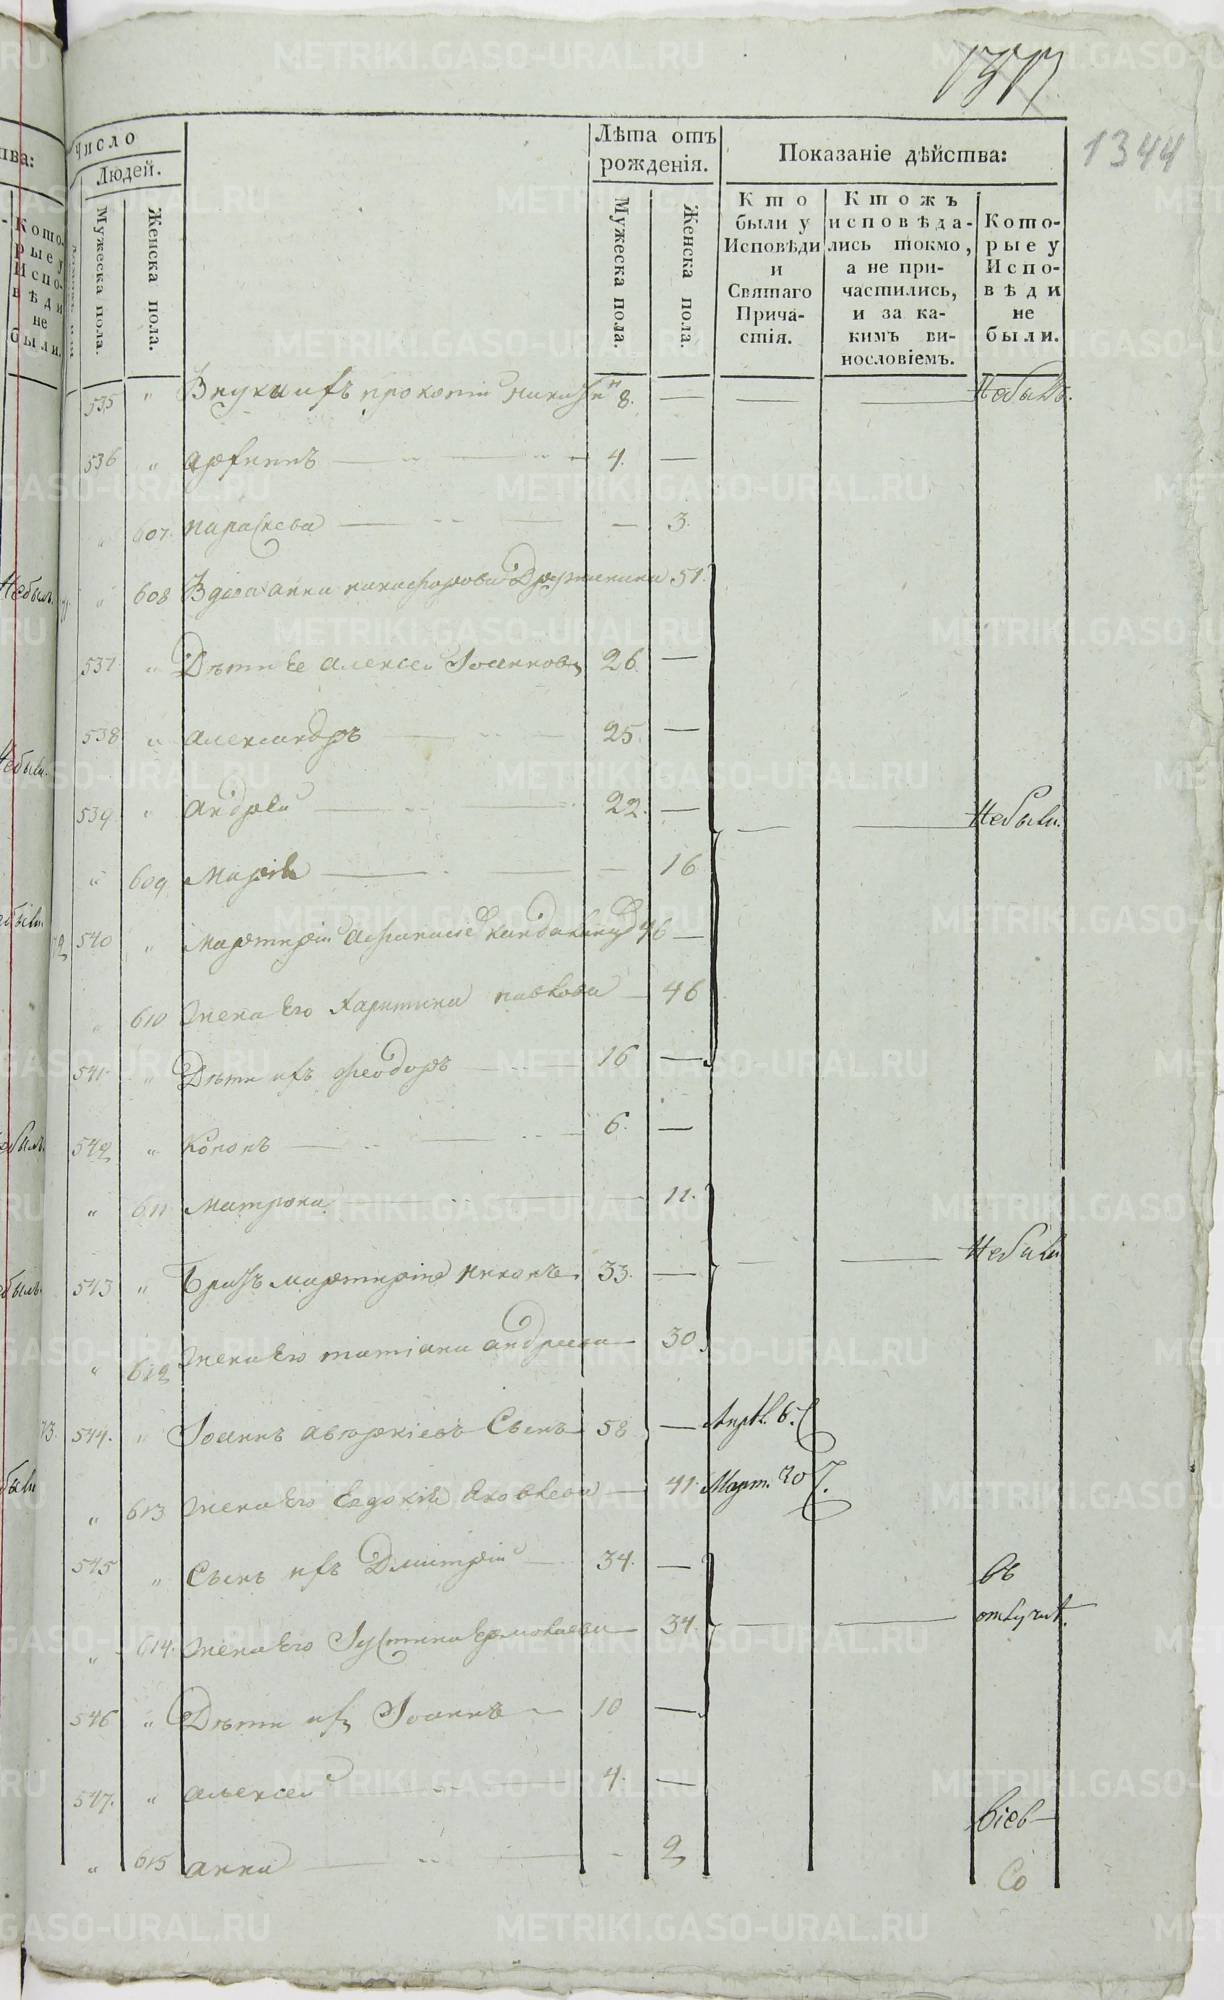 1344
Число
Людей.
Мужеска пола.
Женска пола.
Лѣта отъ рожденія.
Мужеска пола.
Женска пола.
Показаніе дѣйства:
Кто были у Исповѣди и Святаго Прича-стія.
Ктожъ исповѣда-лись токмо, а не при-частились, и за ка-кимъ ви-нословіемъ.
Кото-рые у Испо-вѣди не были.
535 " Внуки ихъ прокопій 8. — — — Небылъ.
536 " архиппъ — 4. —
" 607. параскева — — 3.
" 608 Вдова анна никифорова Дружинина 51.
537 " Дѣти Ее алексей Іоанновъ 26. —
538 " александръ 25. —
539 " андрей — 22. — — — Небыли.
" 609 Марія — — 16
540 " Мартирій Афанасіевъ 46 —
610 жена Его Харитина павлова — 46
541 " Дѣти ихъ феодоръ — 16 —
542 " Кононъ — 6. —
" 611 матрона — — 11.
543 " Братъ мартирія Никонъ 33. — — — Небыли
" 612 жена Его татіана андреева — 30
73. 544. " Іоаннъ аверкіевъ Сынъ 58 — Апрѣл. 6.
" 613 жена Его Евдокія Яковлева — 41. Март. 20
545 " Сынъ ихъ Дмитрій — 34. — въ
" 614. жена Его Іустина Ермолаева — 34. — — отлучкѣ.
546 " Дѣти ихъ Іоаннъ — 10 —
547. " алексей — 4. —
" 615 анна — — 2
Со
METRIKI.GASO-URAL.RU